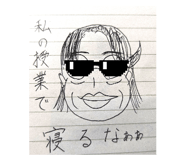 私の授業で
寝るなぁぁ